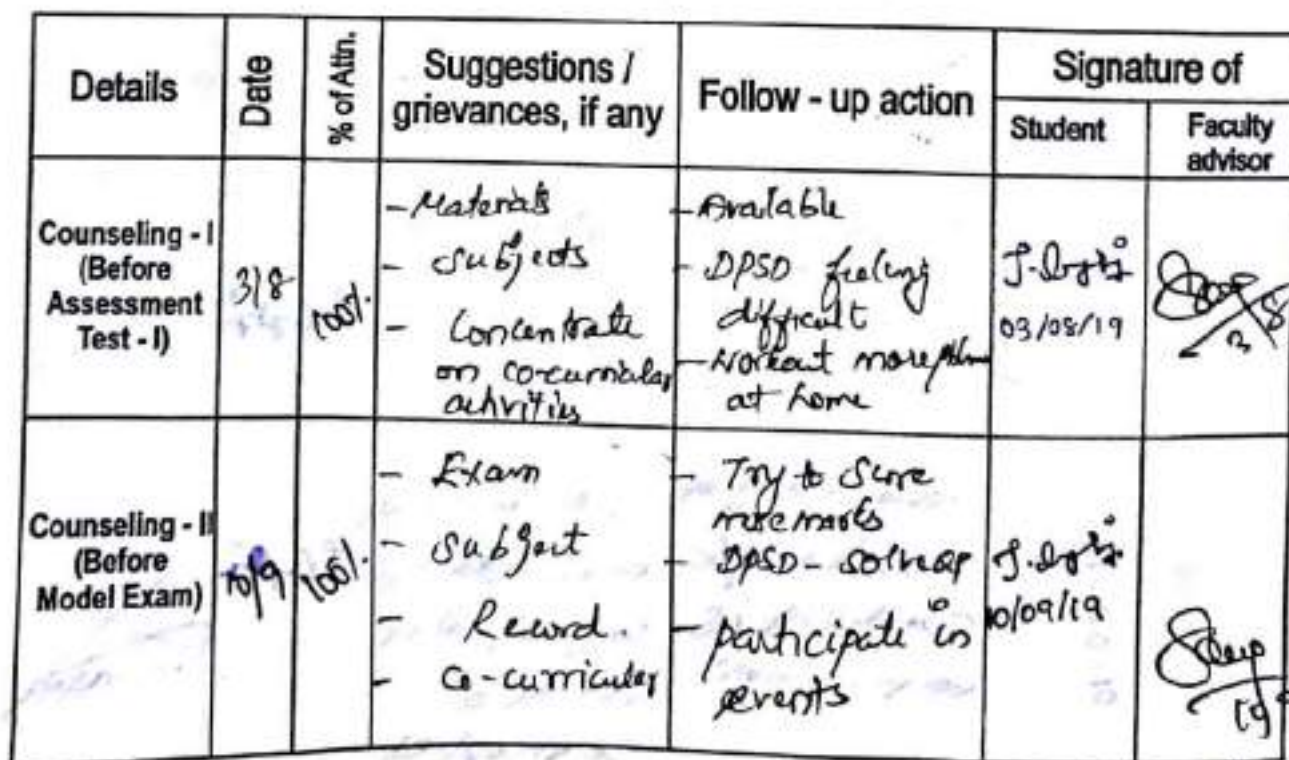 Details
Date
% of Attn.
Suggestions /
grievances, if any
Follow - up action
Signature of
Student
Faculty
advisor
Counseling - I
(Before
Assessment
Test - I)
3/8
100%
- Materials
- Subjects
- Concentrate
on co-curricular
activities
- Available
- DPSD feeling
difficult
- Workout more
at home
03/08/19
Counseling - II
(Before
Model Exam)
10/9
100%
- Exam
- Subject
- Record
- Co-curricular
- Try to Score
more marks
- DPSD -
- participate in
events
10/09/19